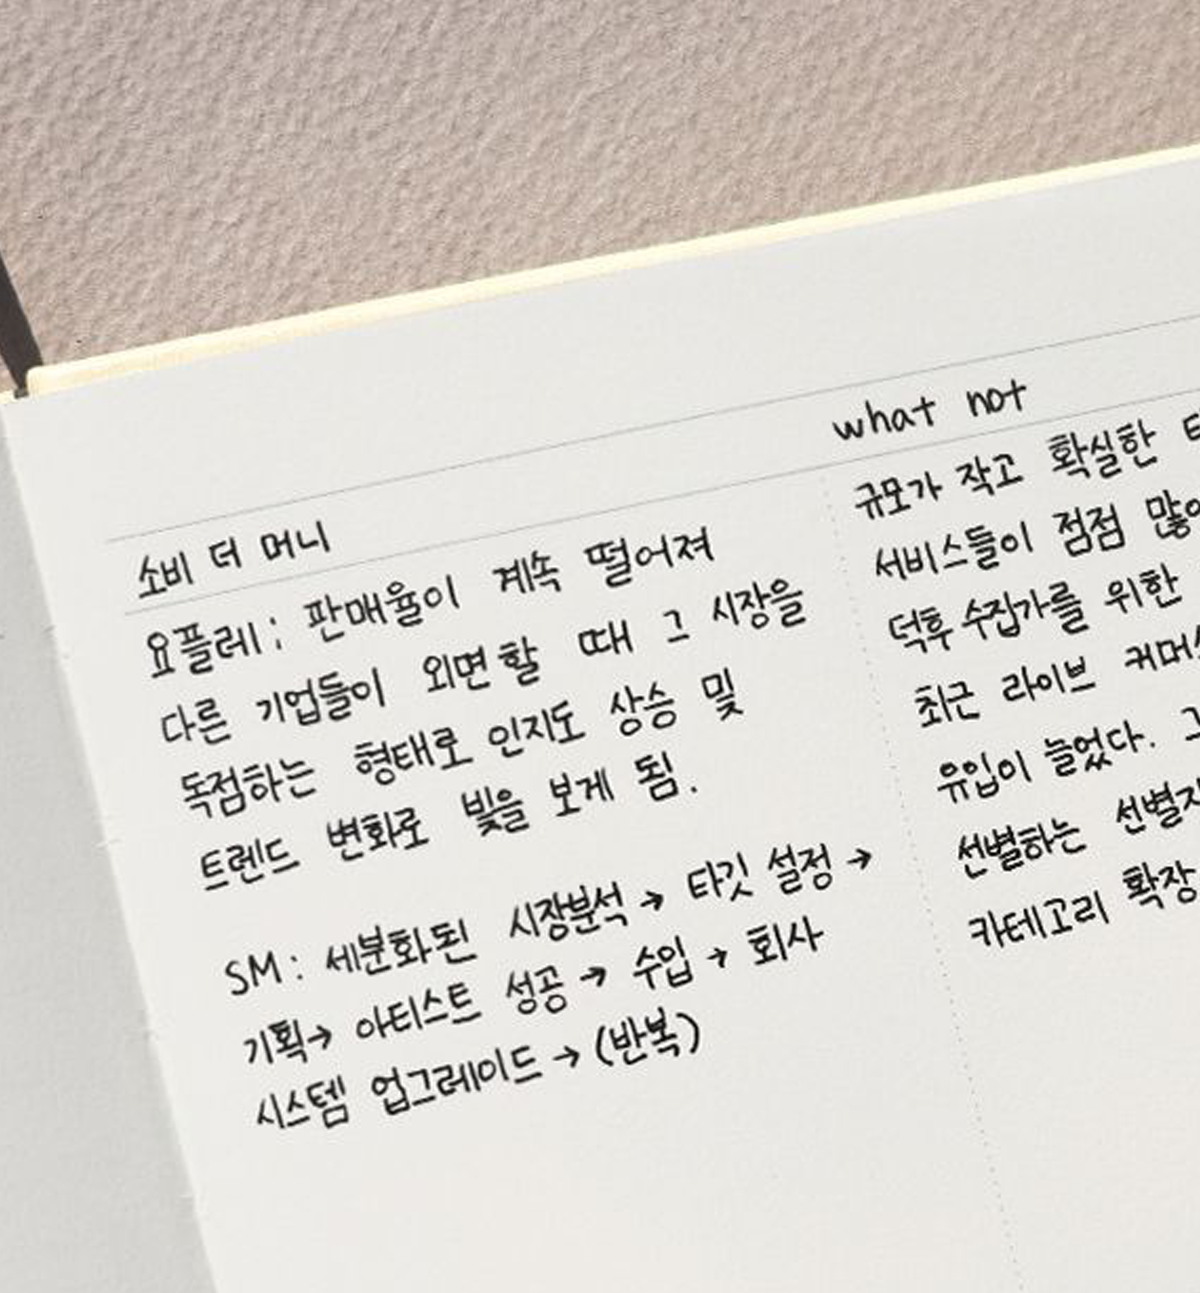 소비 더 머니
요플레 : 판매율이 계속 떨어져
다른 기업들이 외면할 때 그 시장을
독점하는 형태로 인지도 상승 및
트렌드 변화로 빛을 보게 됨.
SM : 세분화된 시장분석 → 타깃 설정 →
기획→ 아티스트 성공 → 수입 → 회사
시스템 업그레이드 → (반복)
what not
규모가 작고 확실한
서비스들이 점점
덕후 수집가를 위한
최근 라이브
유입이 늘었다.
선별하는
카테고리 확장